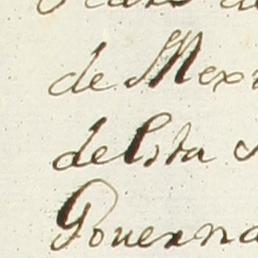 de Mex
de esta
Governa